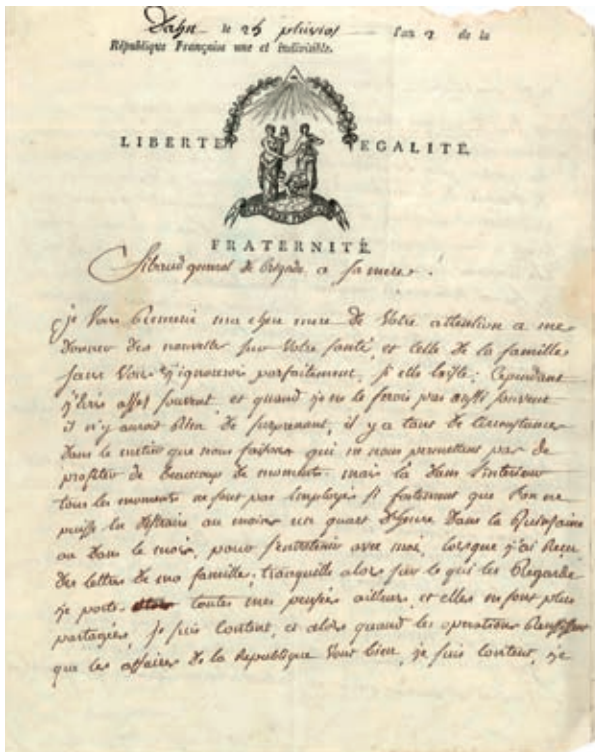 Dahn le 25 pluviôs l'an 2 de la
République Française une et indivisible.
LIBERTÉ EGALITÉ
FRATERNITÉ
Sibaud general de Brigade a sa mere.
je vous remercie ma chere mere de votre attention a me
donner des nouvelles sur votre santé, et celle de la famille
sans vous j'ignorerois parfaitement, si elle existe; Cependant
j'ecris assez souvent, et quand je ne le ferois pas aussi souvent
il n'y auroit Rien de surprenant, il y a tant de circonstances
dans le metier que nous faisons qui ne nous permettent pas de
profiter de beaucoup de moments. mais là dans l'interieur
tous les moments ne sont pas employés si fortement que l'on ne
puisse en distraire au moins un quart d'heure dans la Quinzaine
ou dans le mois, pour s'entretenir avec moi, lorsque j'ai Reçu
des lettres de ma famille, tranquille alors sur ce qui les Regarde
je porte toutes mes pensées ailleurs, et elles ne sont plus
partagées, je suis content, et alors quand les operations Reussissent
que les affaires de la Republique vont bien, je suis content, je